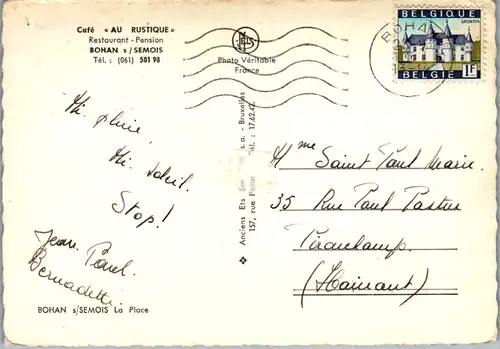 Café « AU RUSTIQUE »
Restaurant - Pension
BOHAN s/SEMOIS
Tél. : (061) 501 98
Photo Véritable
France
BELGIQUE
SPONTIN
BELGIË
1F
BOHAN
Mi pluie,
Mi soleil.
Stop!
Jean Paul
Bernadette
BOHAN s/SEMOIS La Place
Anciens Ets s.a. - Bruxelles
157, rue Tél. : 17.62.42
Mme Saint Paul Marie.
35 Rue Paul Pastur
(Hainaut)